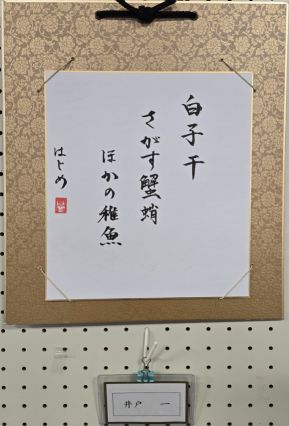 白子干
さがす蟹蛸
ほかの稚魚
はじめ
井戸 一